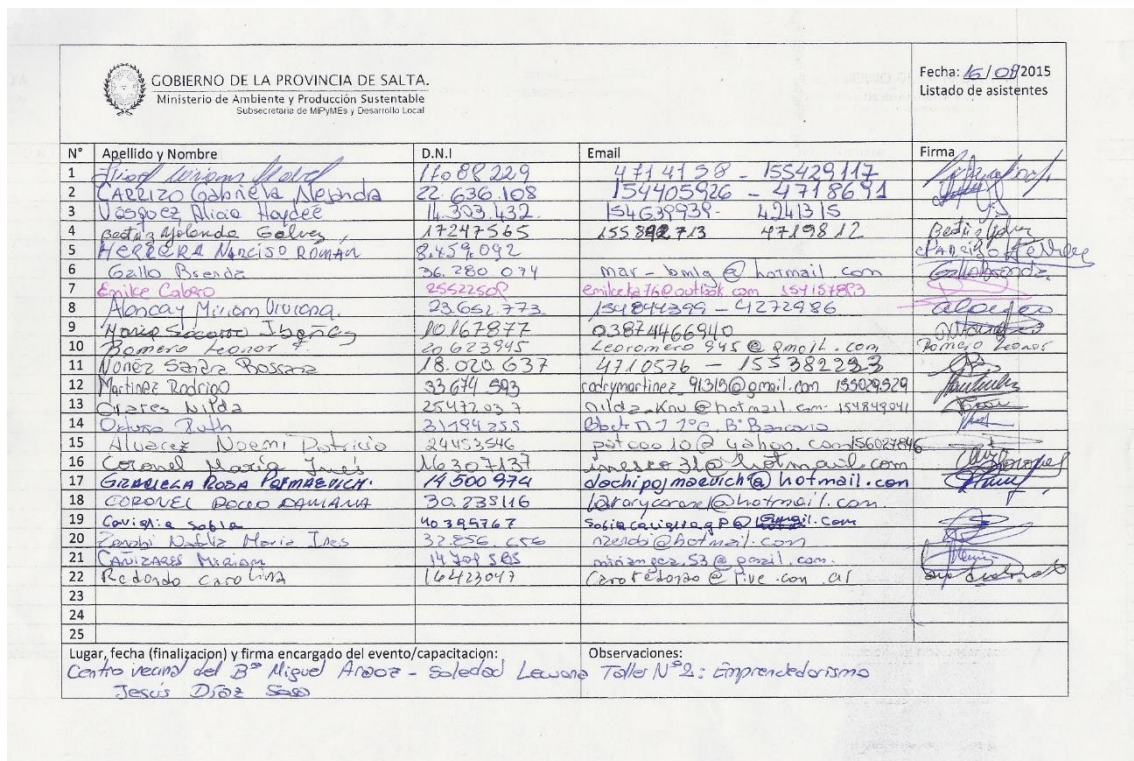 GOBIERNO DE LA PROVINCIA DE SALTA.
Ministerio de Ambiente y Producción Sustentable
Subsecretaría de MiPyMEs y Desarrollo Local
Fecha: 16/09/2015
Listado de asistentes
N° Apellido y Nombre D.N.I Email Firma
1 4714158 - 155429117
2 CARRIZO Gabriela Alejandra 22.636.108 154405926 - 4718691
3 Vásquez Alicia Haydeé 14.303.432. 154639939- 4241315
4 Beatriz Yolanda Galvez, 17247565 155892713 4719812
5 HERRERA NARCISO ROMÁN 8.459.092
6 Gallo Brenda 36.280.074 mar-bmlg@hotmail.com
7 Enilce Cabero 25522508
8 Alancay Miriam Viviana. 23.652.773 154844399 - 4272986
9 10167877 03874466940
10 Romero Leonor F. 20623945 Leoromero945@gmail.com Romero Leonor
11 Nuñez Sandra Rossana 18.020.637 4710576 - 155382293
12 Martinez Rodrigo 33674593 rodrymartinez_91319@gmail.com 155029529
13 Nilda 25472037 nilda_knu@hotmail.com 154849041
14 Ruth 31194255
15 Alvarez Noemi Patricia 24453546 patcoo10@yahoo.com 156027846
16 Coronel María Inés 16307137 inesco31@hotmail.com
17 GRACIELA ROSA 14500974
18 CORONEL ROCIO DAMIANA 30.235116
19 Caviglia Sofia 40399767
20 Zenobi Natalia Maria Ines 32.856.656 nzenobi@hotmail.com
21 CAÑIZARES Miriam 14709585
22 Redondo Carolina 16423047 Caroredondo@live.com.ar
23
24
25
Lugar, fecha (finalizacion) y firma encargado del evento/capacitacion: Observaciones:
Centro vecinal del B° Miguel Araoz - Soledad Taller N°2: Emprendedorismo
Jesús Díaz